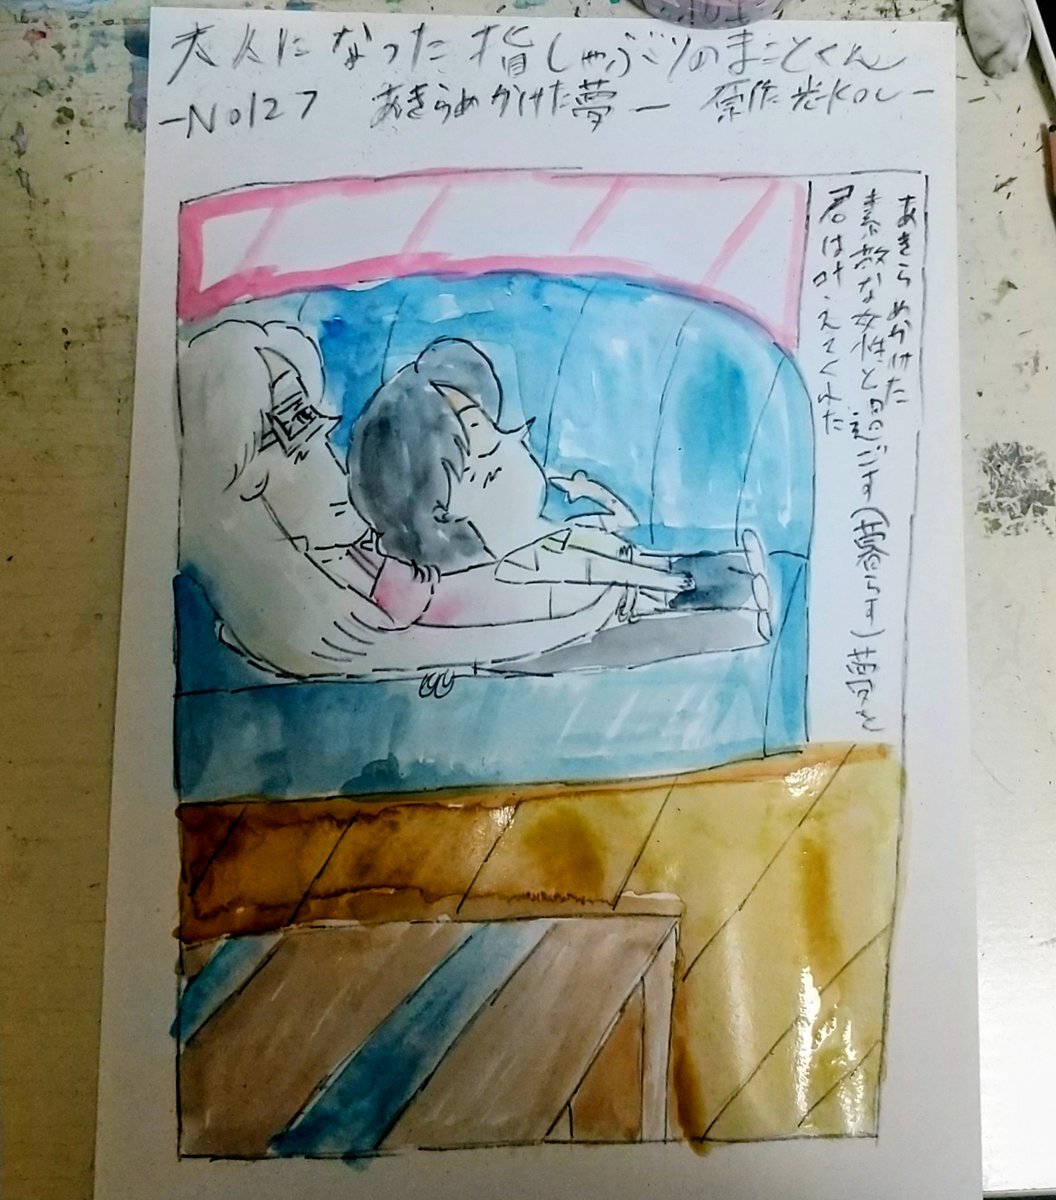 大人になった指しゃぶりのまことくん
-No127 あきらめかけた夢- 原作 光KOU-
あきらめかけた
素敵な女性と過ごす(暮らす)
君は叶えてくれた